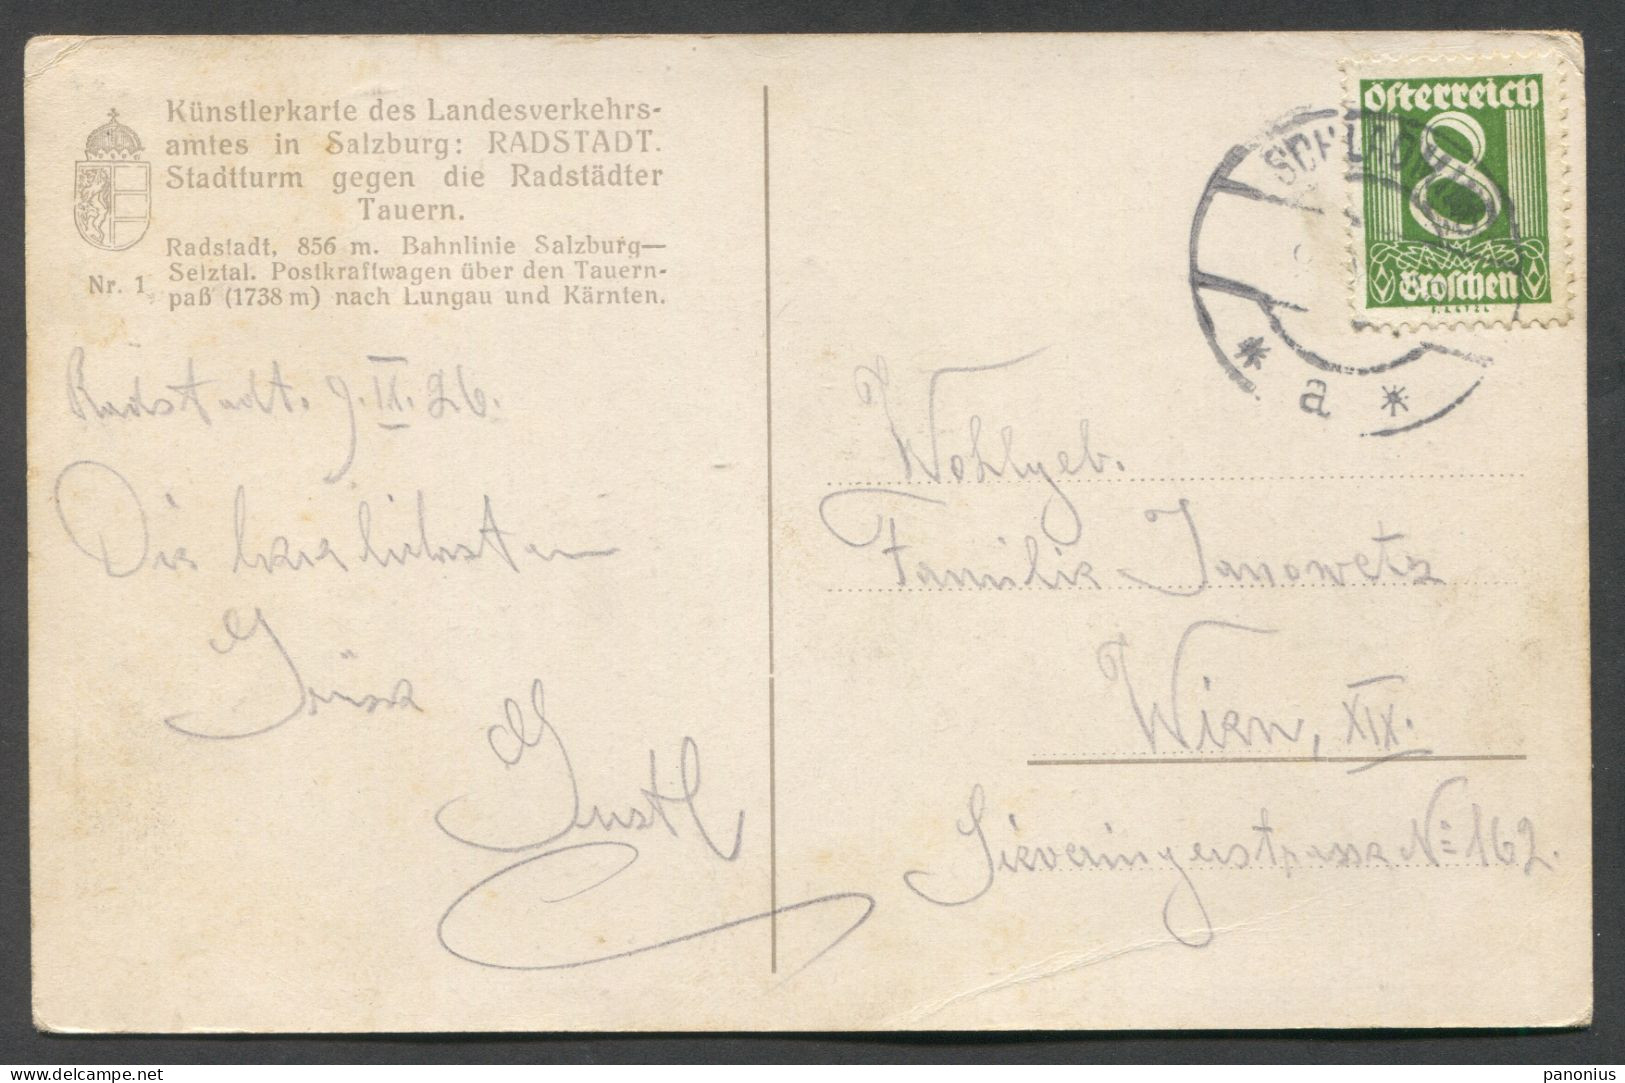 Künstlerkarte des Landesverkehrs-
amtes in Salzburg: RADSTADT.
Stadtturm gegen die Radstädter
Tauern.
Radstadt, 856 m. Bahnlinie Salzburg—
Selztal. Postkraftwagen über den Tauern-
paß (1738 m) nach Lungau und Kärnten.
Nr. 1
Radstadt. 9.IX.26.
Die herzlichsten
Grüsse
Gustl
Österreich
8
Groschen
SCHLADM
* a *
Wohlgeb.
Familie Janowetz
Wien, XIX.
Sieveringerstrasse No 162.
panonius